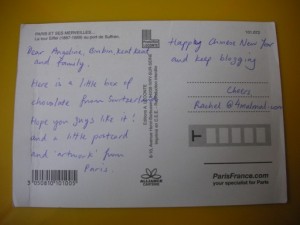 PARIS ET SES MERVEILLES...
La tour Eiffel (1887-1889) au pont de Suffren.
Dear Angeline,
and family.
Here is a little box of
chocolate from Switzerland
Hope you guys like it!
and a little postcard
and 'artwork' from
Paris.
Happy Chinese New Year
and keep blogging
Cheers
Rachel @
ALLIANCE
ParisFrance.com
your specialist for Paris